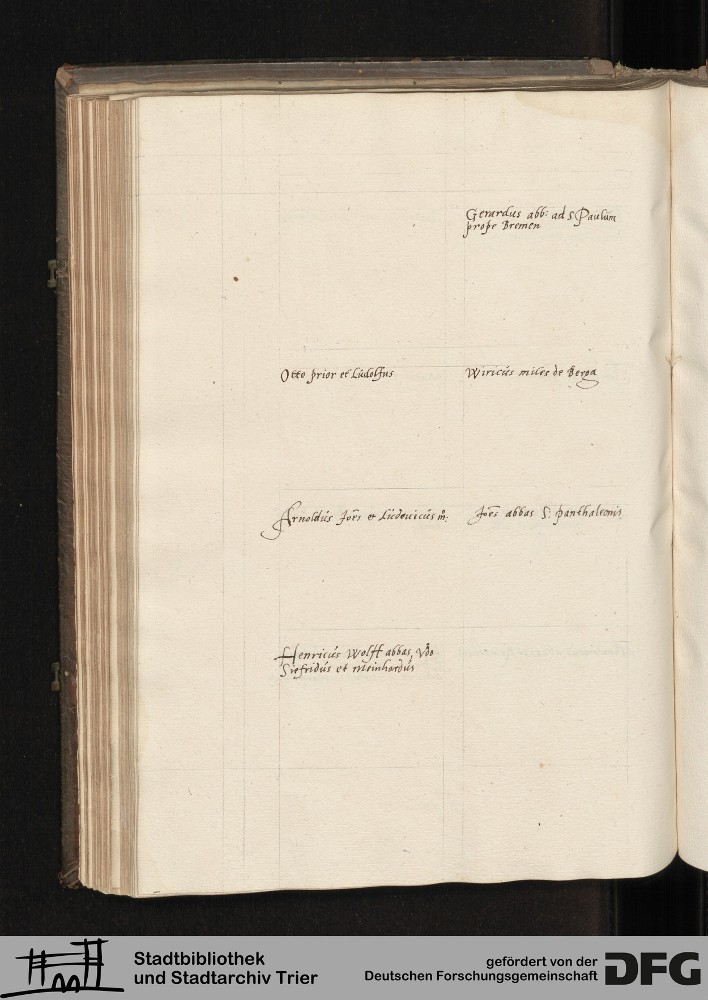 Gerardus abb: ad S Paulum
prope Bremen
Otto prior et Ludolfus
Wiricus miles de Berga
Arnoldus Joēs et Ludovicus m:
Joēs abbas S: Panthaleonis
Henricus Wolff abbas, Vdo
Siefridus et Meinhardus
Stadtbibliothek
und Stadtarchiv Trier
gefördert von der
Deutschen Forschungsgemeinschaft
DFG